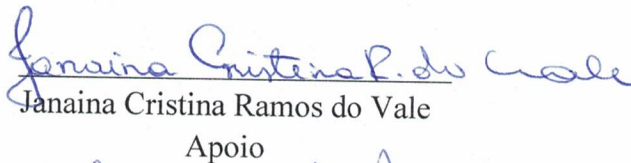 Janaina Cristina R. do Vale
Janaina Cristina Ramos do Vale
Apoio